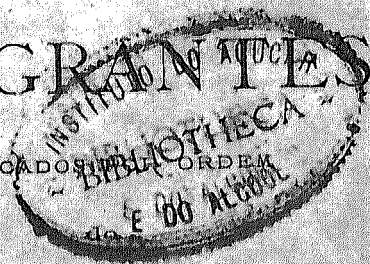 GRANTES
INSTITUTO DO ASSUCAR
BIBLIOTHECA
CADOS POR ORDEM
E DO ALCOOL